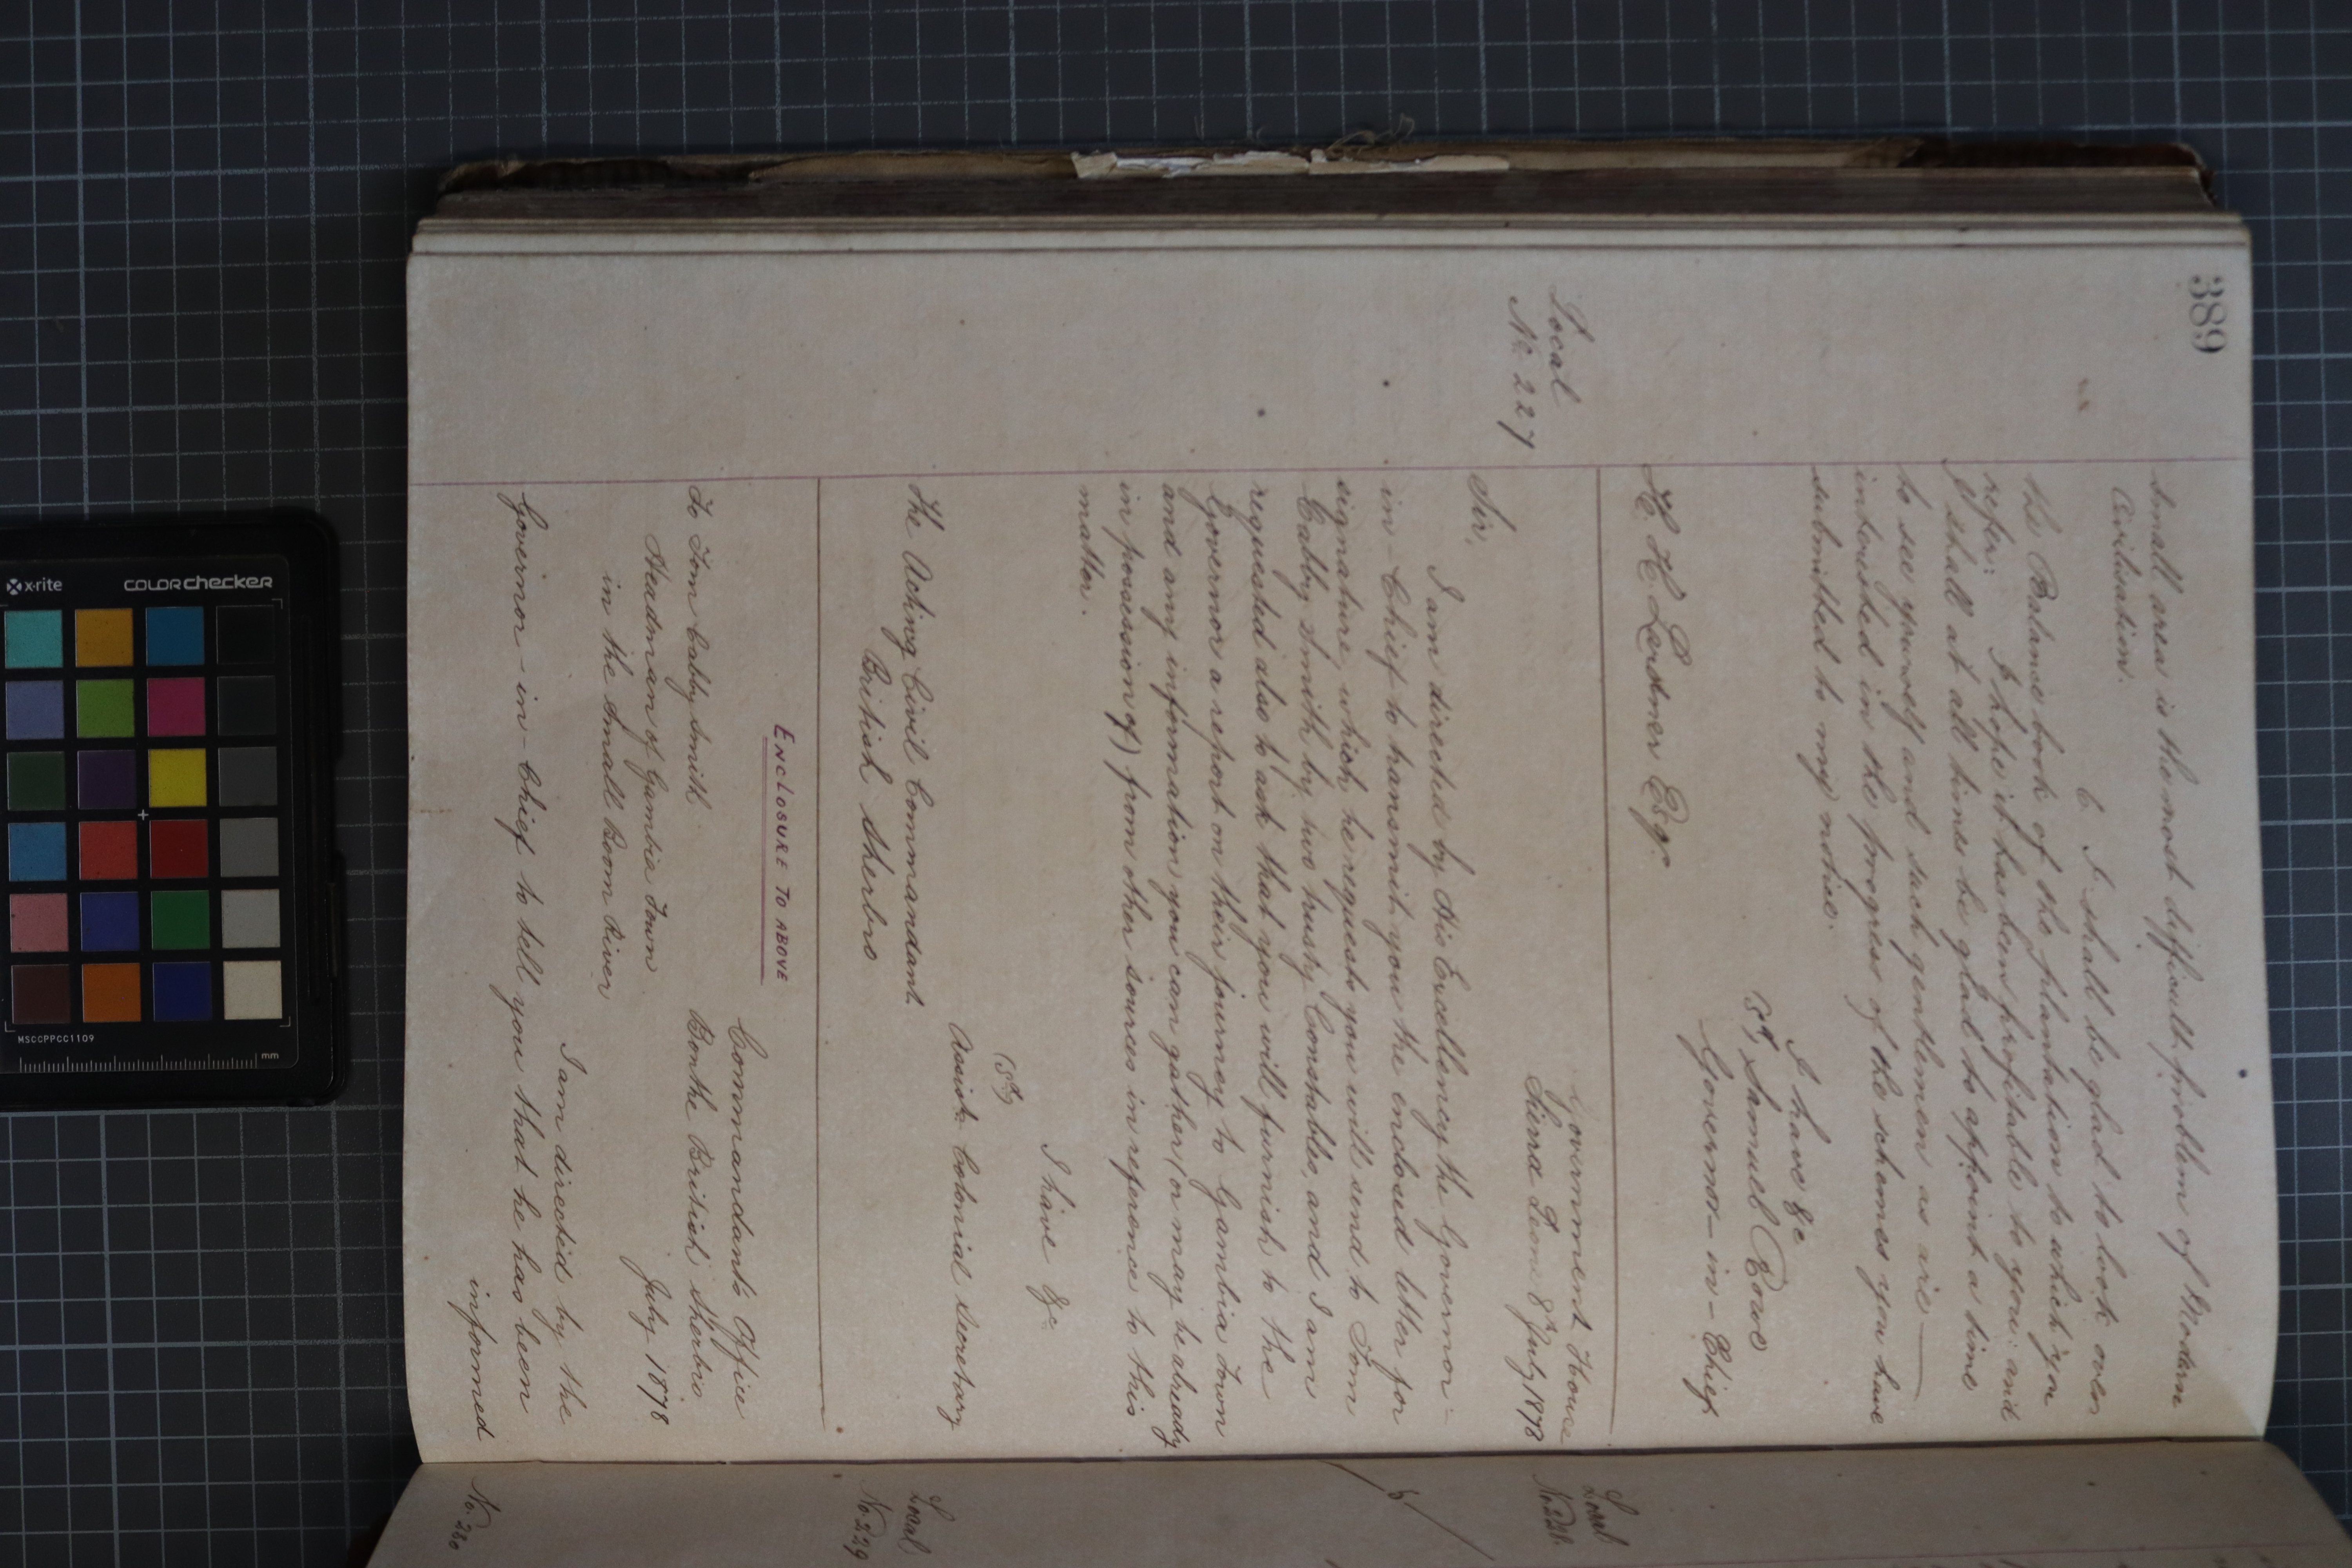 389
small area is the most difficult problem of Modern
Civilisation.
6 I shall be glad to look over
the Balance book of the plantation to which you
refer: I hope it has been profitable to you: and
I shall at all times be glad to appoint a time
to see yourself and such gentlemen as are
interested in the progress of the schemes you have
submitted to my notice.
I have &c
Sd, Samuel Rowe
Governor-in-Chief
H. H. Lardner Esqr.
Local
No. 227
Government House
Sierra Leone 8th July 1878
Sir,
I am directed by His Excellency the Governor-
in-Chief to transmit you the enclosed letter for
signature, which he requests you will send to Tom
Cabby Smith by two trusty Constables, and I am
requested also to ask that you will furnish to the
Governor a report on their journey to Gambia Town
and any information you can gather (or may be already
in possession of) from other sources in reference to this
matter.
I have &c
(Sd)
Assist. Colonial Secretary
The Acting Civil Commandant
British Sherbro
ENCLOSURE TO ABOVE
Commandant's Office
Bonthe British Sherbro
July 1878
To Tom Cabby Smith
Headman of Gambia Town
in the Small Boom River
I am directed by the
Governor-in-Chief to tell you that he has been
informed
Local
No. 228.
Local
No. 229
No. 230
x-rite
COLORchecker
MSCCPPCC1109
mm